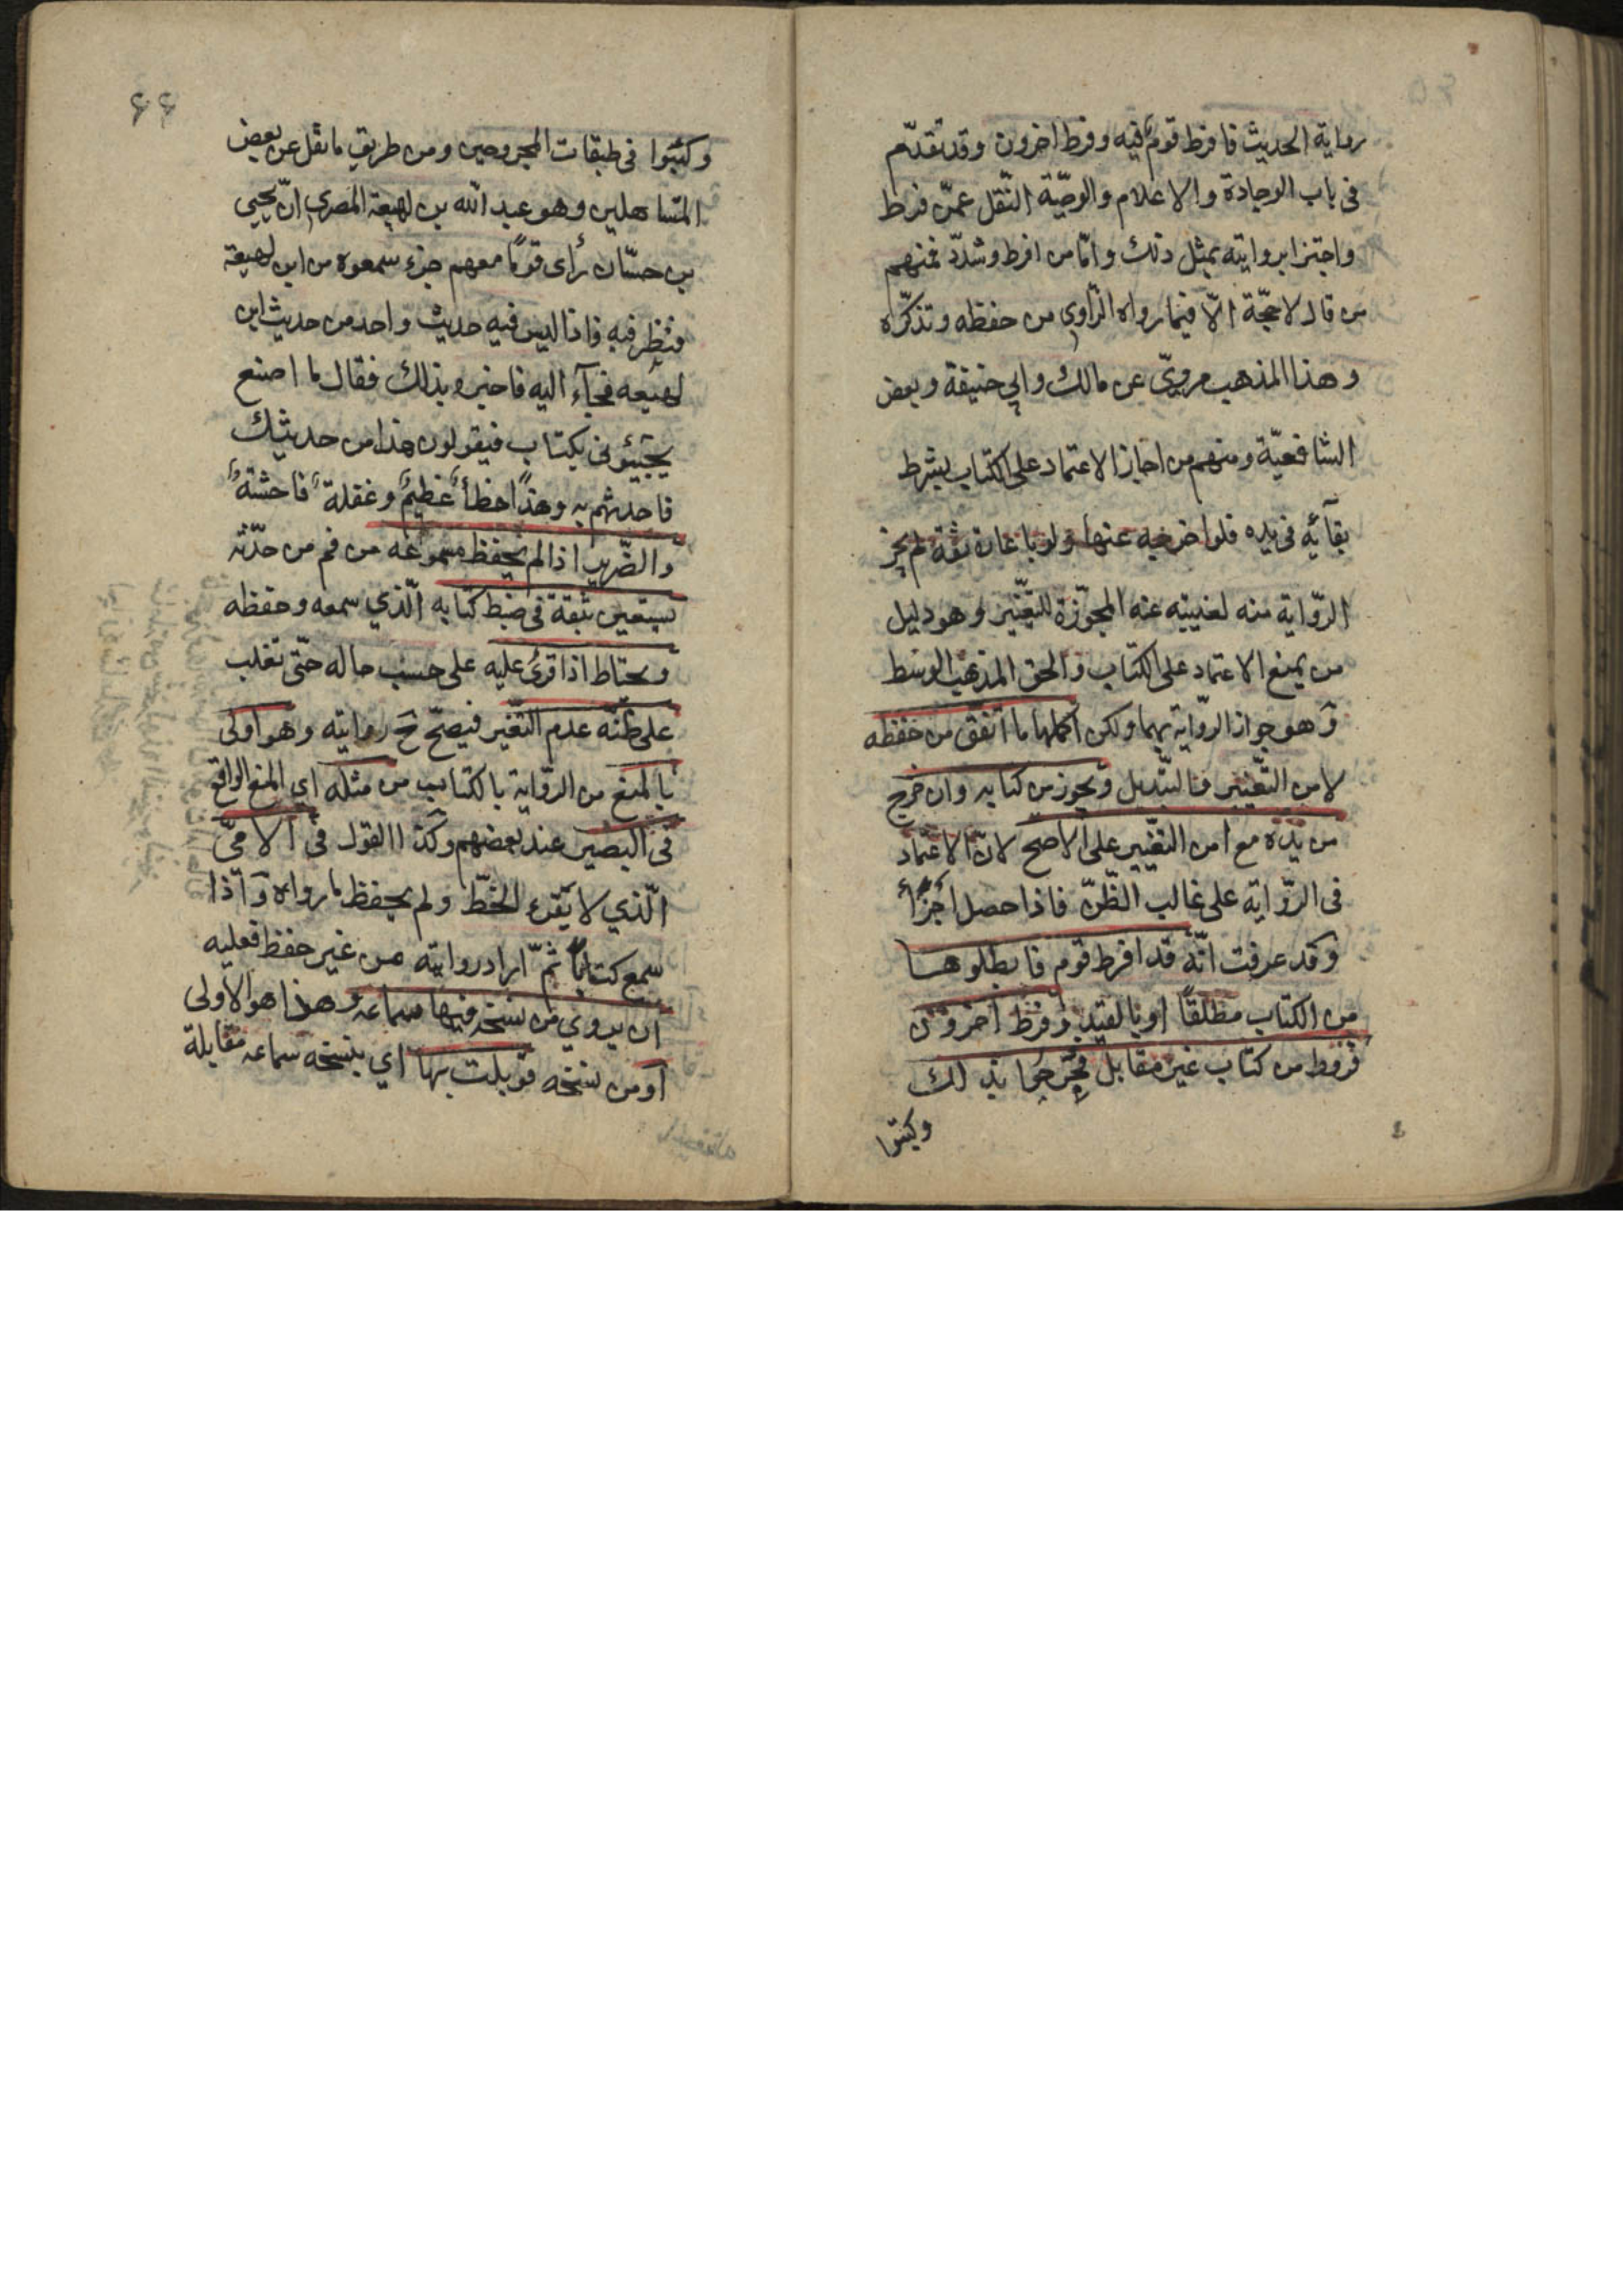 رواية الحديث فافرط قوم فيه وفرط اخرون وقد تقدّم
في باب الوجادة والاعلام والوصيّة النّقل عمّن فرط
واجتزا بروايته بمثل ذلك وامّا من افرط وشدّد فمنهم
من قال لا حجّة الّا فيما رواه الرّاوي من حفظه وتذكّره
وهذا المذهب مرويّ عن مالك وابي حنيفة وبعض
الشافعيّة ومنهم من اجاز الاعتماد على الكتاب بشرط
بقآئه في يده فلو اخرجه عنها ولو باعارة ثقة لم يجز
الرّواية منه لغيبته عنه المجوّزة للتّغيير وهو دليل
من يمنع الاعتماد على الكتاب والحق المذهب الوسط
وهو جواز الرّواية بهما ولكن اكملها ما اتّفق من حفظه
لامن التّغيير والتبديل ويجوز من كتابه وان خرج
من يده مع امن التغيير على الاصح لانّ الاعتماد
في الرّواية على غالب الظّنّ فاذا حصل اجزأ
وقد عرفت انّه قد افرط قوم فابطلوها
من الكتاب مطلقًا او بالقيد وفرط اخرون
فرووا من كتاب غير مقابل فجرّحوا بذلك
وكتبوا
۶۶
وكتبوا في طبقات المجروحين ومن طريق ما نقل عن بعض
المتساهلين وهو عبد الله بن لهيعة المصري انّ يحيى
بن حسّان رأى قومًا معهم جزء سمعوه من ابن لهيعة
فنظر فيه فاذا ليس فيه حديث واحد من حديث ابن
لهيعه فجآء اليه فاخبره بذلك فقال ما اصنع
يجيئوني بكتاب فيقولون هذا من حديثك
فاحدثهم به وهذا خطأ عظيم وغفلة فاحشة
والضّرير اذا لم يحفظ مسموعه من فم من حدّثه
يستعين بثقة في ضبط كتابه الّذي سمعه وحفظه
ويحتاط اذا قرئ عليه على حسب حاله حتّى تغلب
على ظنّه عدم التّغيير فيصحّ ح روايته وهو اولى
بالمنع من الرّواية بالكتاب من مثله اي المنع الواقع
في البصير عند بعضهم وكذا القول في الامّيّ
الّذي لا يقرء الخطّ ولم يحفظ ما رواه واذا
سمع كتابًا ثمّ اراد روايته من غير حفظ فعليه
ان يروي من نسخة فيها سماعه وهذا هو الاولى
او من نسخه قوبلت بها اي بنسخه سماعه مقابلة